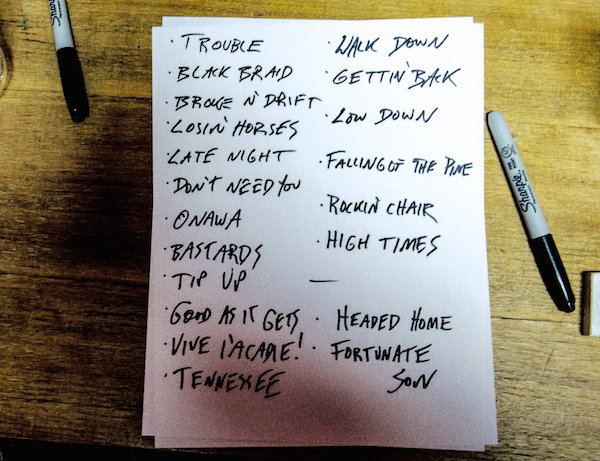 · TROUBLE
· BLACK BRAID
· BROKE N' DRIFT
· LOSIN' HORSES
· LATE NIGHT
· DON'T NEED YOU
· ONAWA
· BASTARDS
· TIP UP
· GOOD AS IT GETS
· VIVE L'ACADIE!
· TENNEXEE
· WALK DOWN
· GETTIN' BACK
· LOW DOWN
· FALLING OF THE PINE
· ROCKIN CHAIR
· HIGH TIMES
—
· HEADED HOME
· FORTUNATE
SON
Sharpie